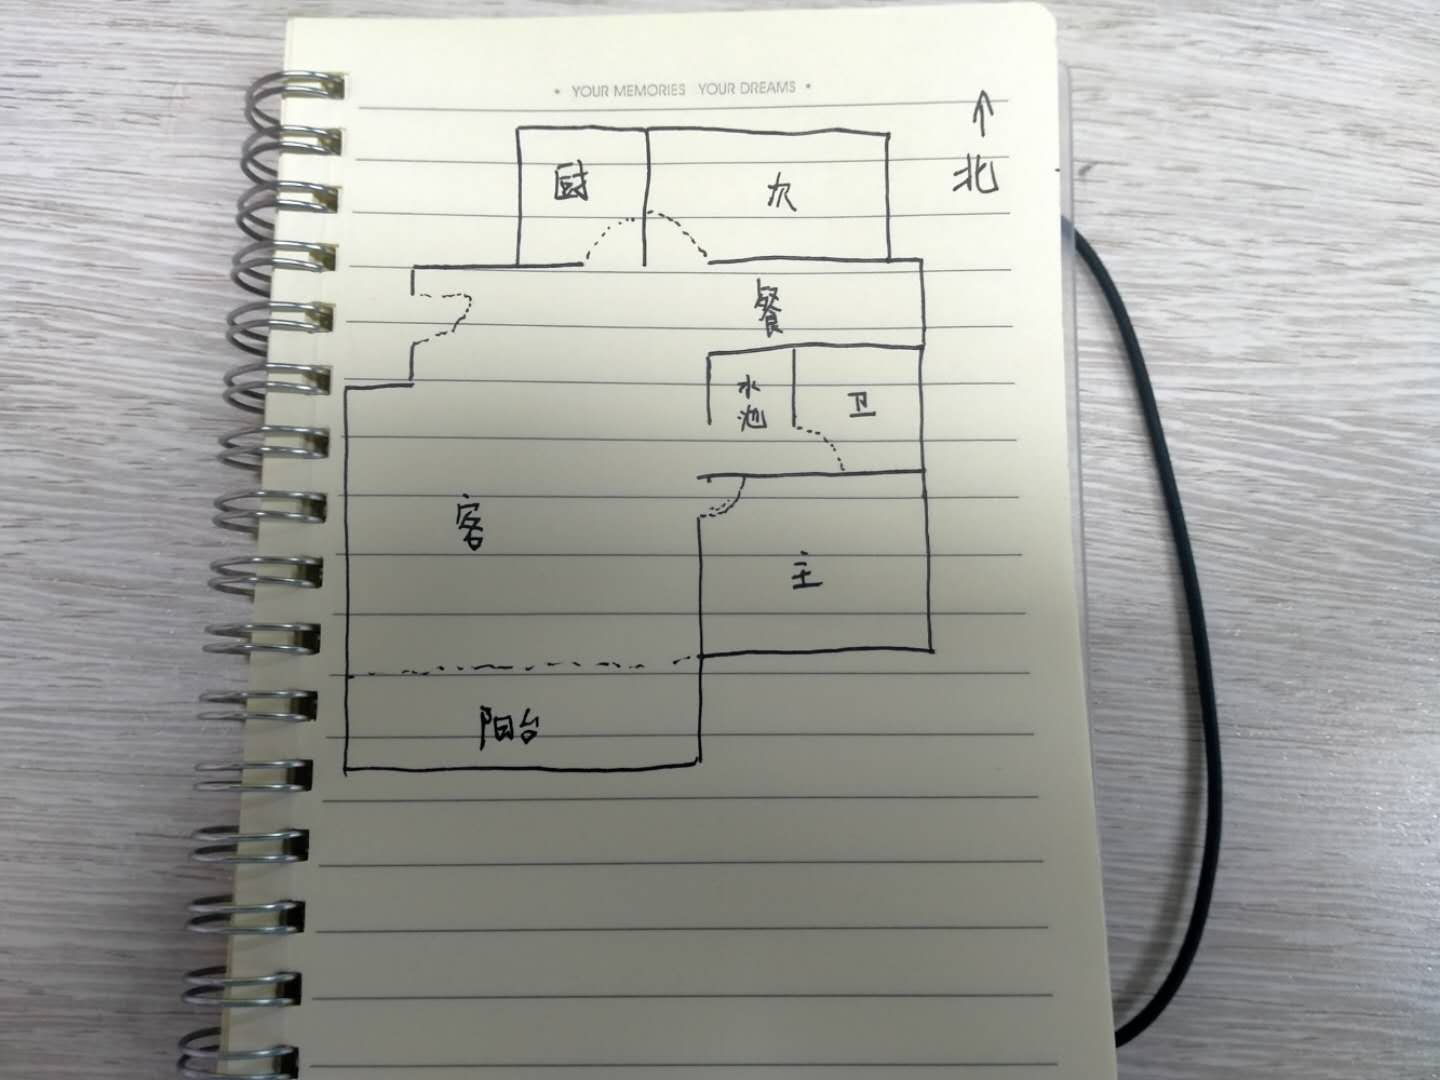 • YOUR MEMORIES YOUR DREAMS •
北
厨
次
餐
水池
卫
客
主
阳台